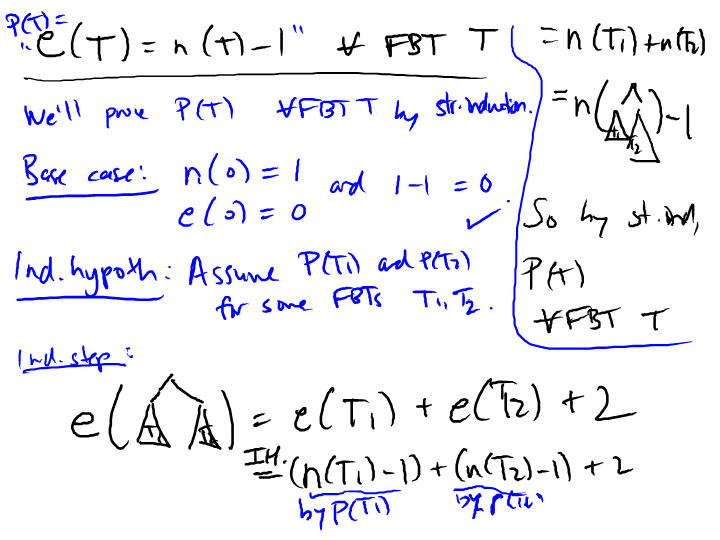 P(T) =
"e(T) = n(T) - 1" ∀ FBT T
We'll prove P(T) ∀FBT T by str. induction.
Base case: n(o) = 1 and 1-1 = 0
e(o) = 0 ✓
Ind. hypoth: Assume P(T₁) and P(T₂)
for some FBTs T₁, T₂.
Ind. step:
e(T₁ T₂) = e(T₁) + e(T₂) + 2
I.H. = (n(T₁)-1) + (n(T₂)-1) + 2
by P(T₁) by P(T₂)
= n(T₁) + n(T₂)
= n(T₁ T₂) - 1
So by st. ind,
P(T)
∀FBT T